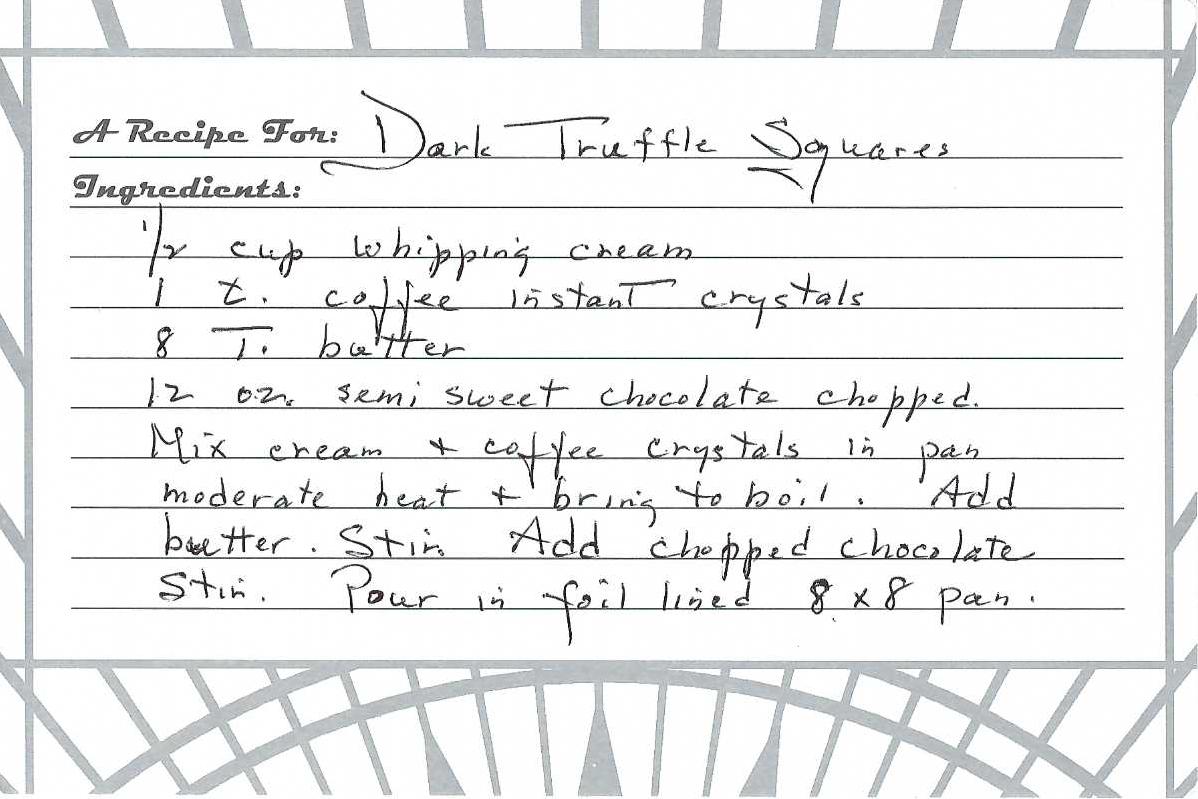 A Recipe For: Dark Truffle Squares
Ingredients:
1/2 cup whipping cream
1 t. coffee instant crystals
8 T. butter
12 oz. semi sweet chocolate chopped.
Mix cream + coffee crystals in pan
moderate heat + bring to boil. Add
butter. Stir. Add chopped chocolate
Stir. Pour in foil lined 8 x 8 pan.